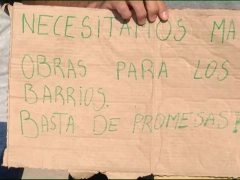 NECESITAMOS MA
OBRAS PARA LOS
BARRIOS.
BASTA DE PROMESAS!